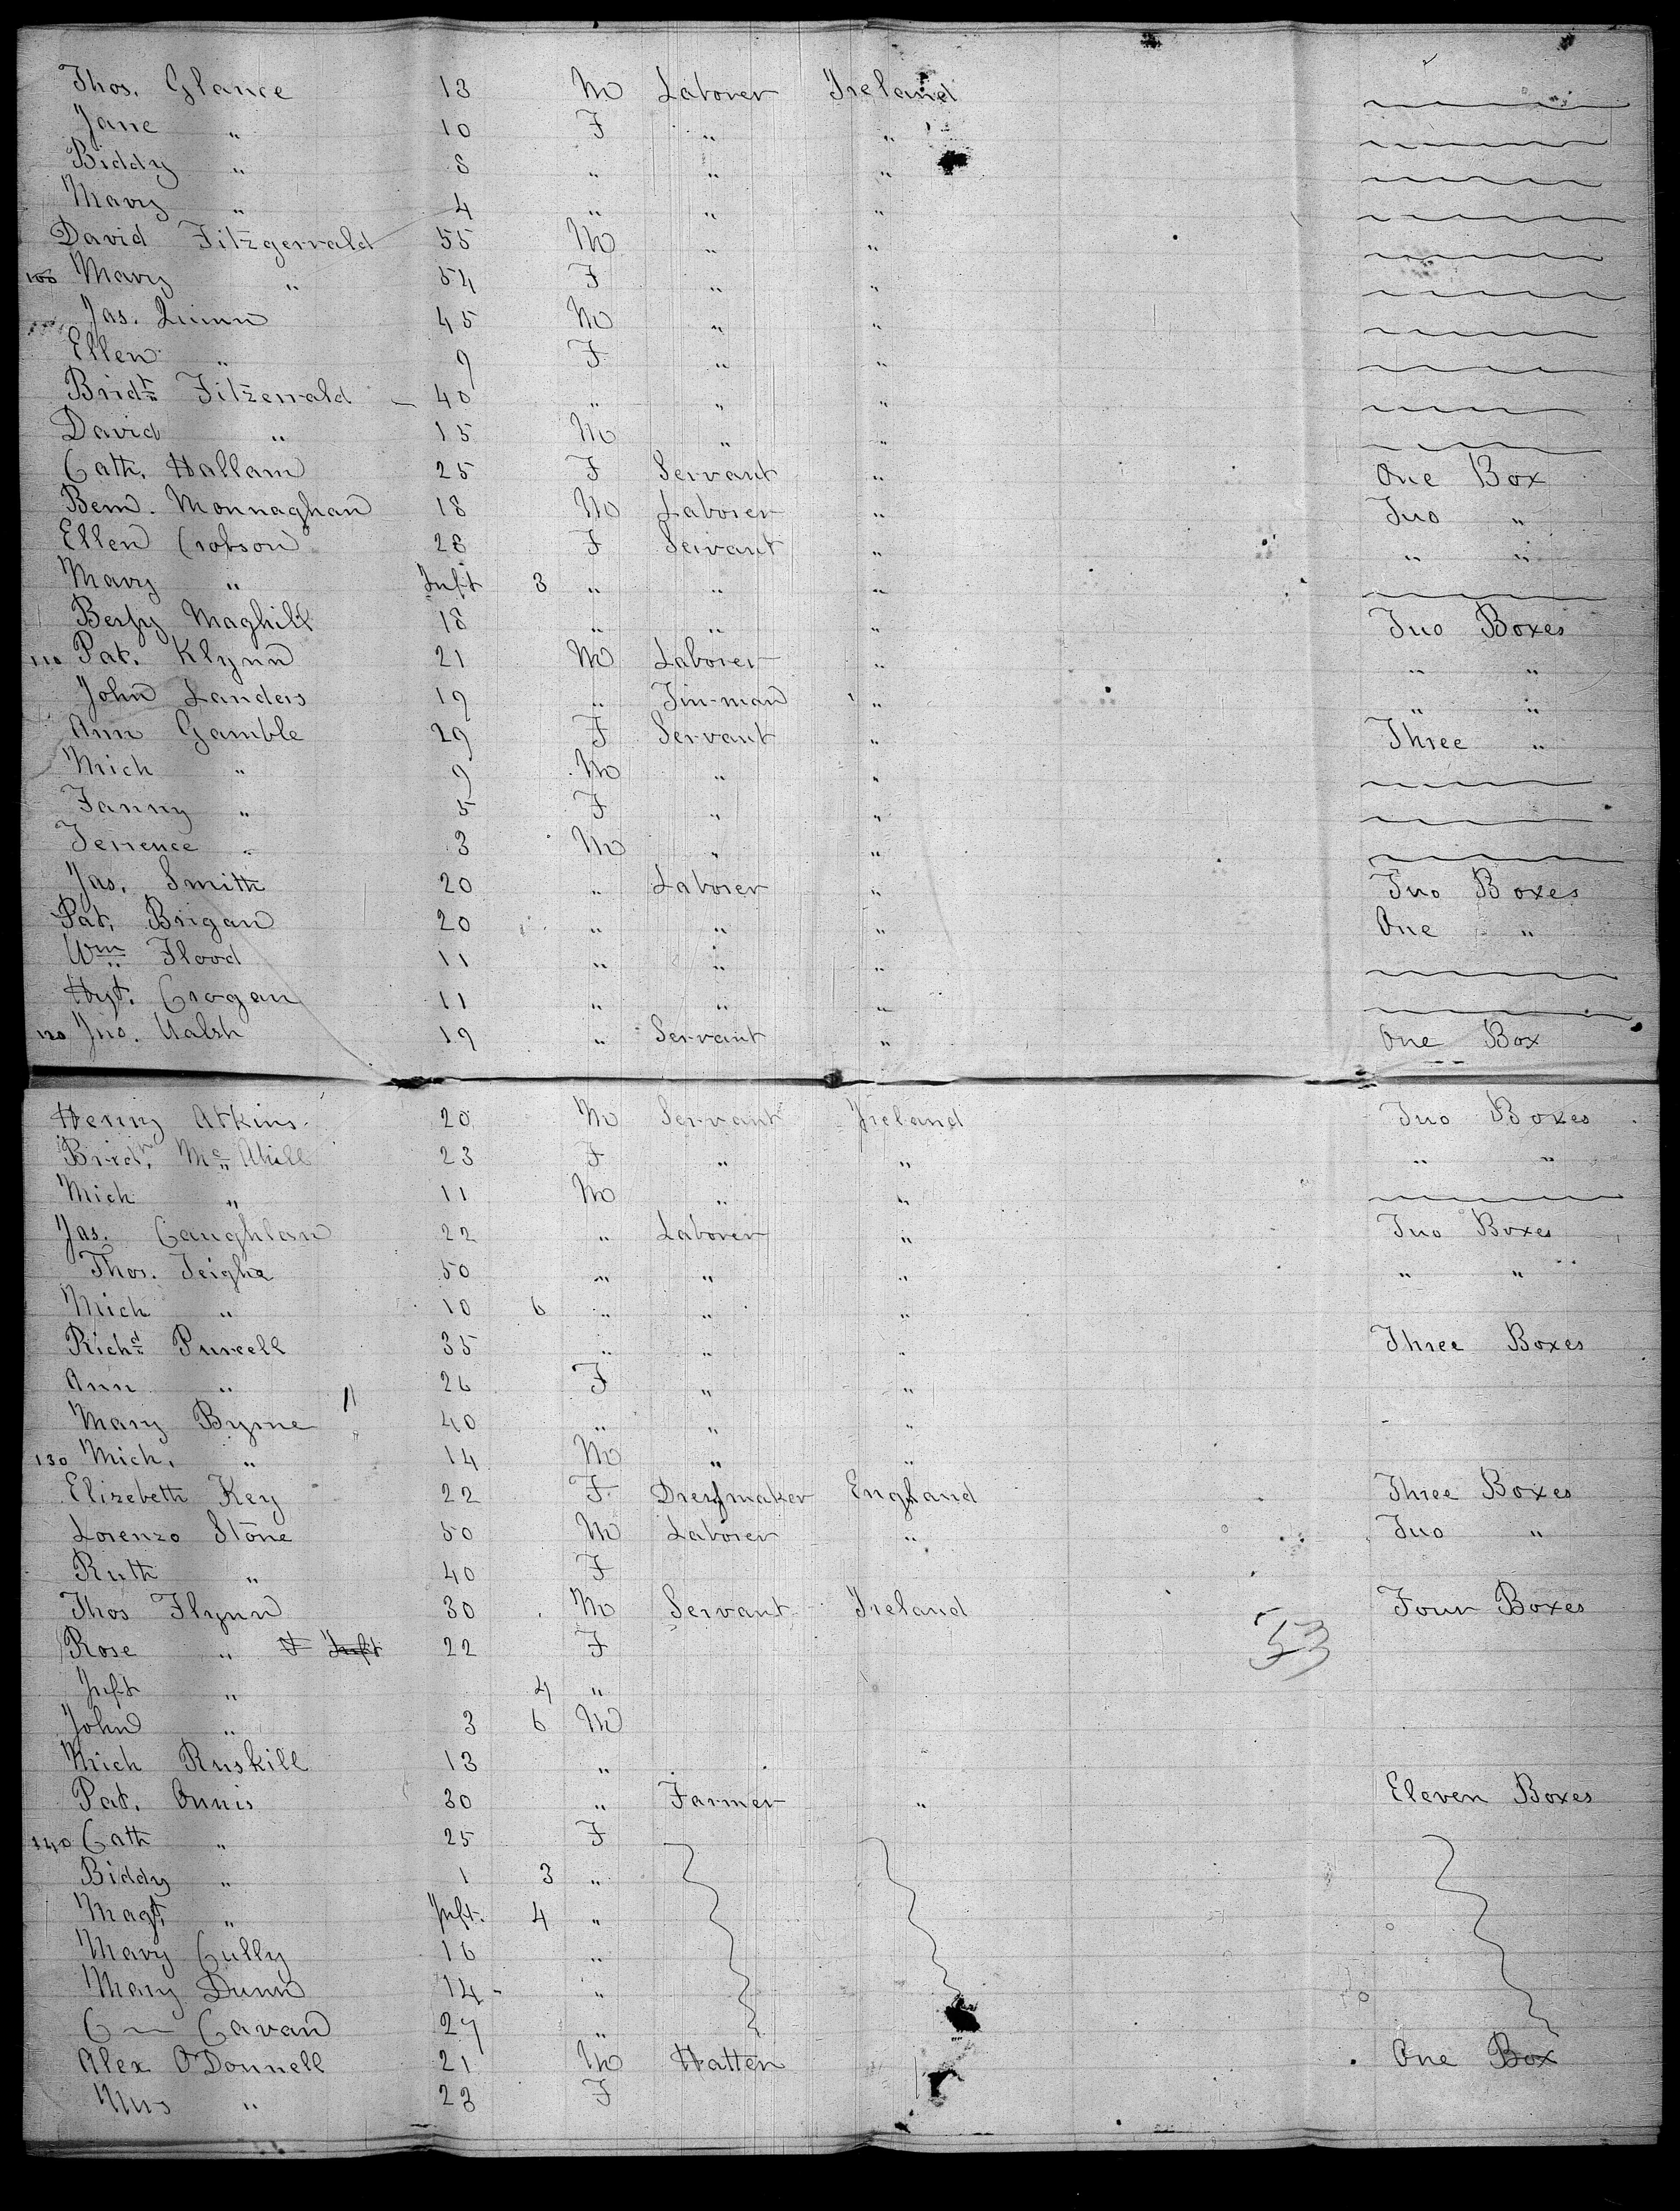 Thos. Glance 13 M Laborer Ireland
Jane " 10 F " "
Biddy " 8 " " "
Mary " 4 " " "
David Fitzgerrald 55 M " "
100 Mary " 54 F " "
Jas. Quinn 45 M " "
Ellen " 9 F " "
Bridt Fitzerrald 40 " " "
David " 15 M " "
Cath. Hallam 25 F Servant " One Box
Bern. Monnaghan 18 M Laborer " Two "
Ellen Crobson 28 F Servant " " "
Mary " Inft 3 " " "
Bessy Maghill 18 " " " Two Boxes
110 Pat. Klynn 21 M Laborer " " "
John Landers 19 " Tin-man " " "
Ann Gamble 29 F Servant " Three "
Mich " 9 M " "
Fanny " 5 F " "
Terrence " 3 M " "
Jas. Smith 20 " Laborer " Two Boxes
Pat. Brigan 20 " " " One "
Wm Flood 11 " " "
Hyt. Crogan 11 " " "
120 Jno. Walsh 19 " Servant " One Box
Henry Atkins 20 M Servant Ireland Two Boxes
Brid. Mc Ahill 23 F " " " "
Mich " 11 M " "
Jas. Caughlan 22 " Laborer " Two Boxes
Thos. Teighe 50 " " " " "
Mich " 10 6 " " "
Richd Purcell 35 " " " Three Boxes
Ann " 26 F " "
Mary Byrne 40 " " "
130 Mich. " 14 M " "
Elizebeth Key 22 F Dressmaker England Three Boxes
Lorenzo Stone 50 M Laborer " Two "
Ruth " 40 F
Thos Flynn 30 M Servant Ireland Four Boxes
Rose " & Inft 22 F 53
Inft " 4 "
John " 3 6 M
Mich Ruskill 13 "
Pat. Onnis 30 " Farmer " Eleven Boxes
140 Cath " 25 F
Biddy " 1 3 "
Magt. " Inft. 4 "
Mary Cully 16 "
Mary Dunn 14 "
C Cavan 27 "
Alex O'Donnell 21 M Hatter One Box
Mrs " 23 F